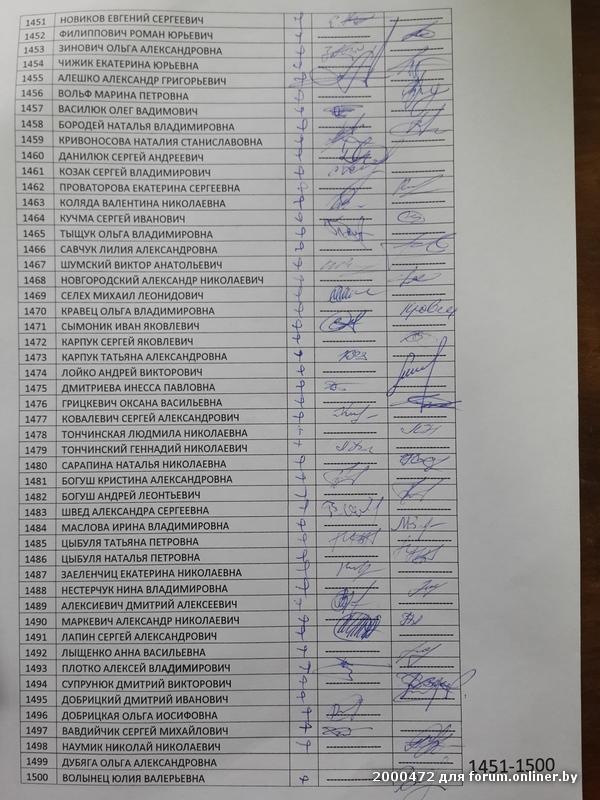 1451 НОВИКОВ ЕВГЕНИЙ СЕРГЕЕВИЧ
1452 ФИЛИППОВИЧ РОМАН ЮРЬЕВИЧ
1453 ЗИНОВИЧ ОЛЬГА АЛЕКСАНДРОВНА
1454 ЧИЖИК ЕКАТЕРИНА ЮРЬЕВНА
1455 АЛЕШКО АЛЕКСАНДР ГРИГОРЬЕВИЧ
1456 ВОЛЬФ МАРИНА ПЕТРОВНА
1457 ВАСИЛЮК ОЛЕГ ВАДИМОВИЧ
1458 БОРОДЕЙ НАТАЛЬЯ ВЛАДИМИРОВНА
1459 КРИВОНОСОВА НАТАЛИЯ СТАНИСЛАВОВНА
1460 ДАНИЛЮК СЕРГЕЙ АНДРЕЕВИЧ
1461 КОЗАК СЕРГЕЙ ВЛАДИМИРОВИЧ
1462 ПРОВАТОРОВА ЕКАТЕРИНА СЕРГЕЕВНА
1463 КОЛЯДА ВАЛЕНТИНА НИКОЛАЕВНА
1464 КУЧМА СЕРГЕЙ ИВАНОВИЧ
1465 ТЫЩУК ОЛЬГА ВЛАДИМИРОВНА
1466 САВЧУК ЛИЛИЯ АЛЕКСАНДРОВНА
1467 ШУМСКИЙ ВИКТОР АНАТОЛЬЕВИЧ
1468 НОВГОРОДСКИЙ АЛЕКСАНДР НИКОЛАЕВИЧ
1469 СЕЛЕХ МИХАИЛ ЛЕОНИДОВИЧ
1470 КРАВЕЦ ОЛЬГА ВЛАДИМИРОВНА
1471 СЫМОНИК ИВАН ЯКОВЛЕВИЧ
1472 КАРПУК СЕРГЕЙ ЯКОВЛЕВИЧ
1473 КАРПУК ТАТЬЯНА АЛЕКСАНДРОВНА
1474 ЛОЙКО АНДРЕЙ ВИКТОРОВИЧ
1475 ДМИТРИЕВА ИНЕССА ПАВЛОВНА
1476 ГРИЦКЕВИЧ ОКСАНА ВАСИЛЬЕВНА
1477 КОВАЛЕВИЧ СЕРГЕЙ АЛЕКСАНДРОВИЧ
1478 ТОНЧИНСКАЯ ЛЮДМИЛА НИКОЛАЕВНА
1479 ТОНЧИНСКИЙ ГЕННАДИЙ НИКОЛАЕВИЧ
1480 САРАПИНА НАТАЛЬЯ НИКОЛАЕВНА
1481 БОГУШ КРИСТИНА АЛЕКСАНДРОВНА
1482 БОГУШ АНДРЕЙ ЛЕОНТЬЕВИЧ
1483 ШВЕД АЛЕКСАНДРА СЕРГЕЕВНА
1484 МАСЛОВА ИРИНА ВЛАДИМИРОВНА
1485 ЦЫБУЛЯ ТАТЬЯНА ПЕТРОВНА
1486 ЦЫБУЛЯ НАТАЛЬЯ ПЕТРОВНА
1487 ЗАЕЛЕНЧИЦ ЕКАТЕРИНА НИКОЛАЕВНА
1488 НЕСТЕРЧУК НИНА ВЛАДИМИРОВНА
1489 АЛЕКСИЕВИЧ ДМИТРИЙ АЛЕКСЕЕВИЧ
1490 МАРКЕВИЧ АЛЕКСАНДР НИКОЛАЕВИЧ
1491 ЛАПИН СЕРГЕЙ АЛЕКСАНДРОВИЧ
1492 ЛЫЩЕНКО АННА ВАСИЛЬЕВНА
1493 ПЛОТКО АЛЕКСЕЙ ВЛАДИМИРОВИЧ
1494 СУПРУНЮК ДМИТРИЙ ВИКТОРОВИЧ
1495 ДОБРИЦКИЙ ДМИТРИЙ ИВАНОВИЧ
1496 ДОБРИЦКАЯ ОЛЬГА ИОСИФОВНА
1497 ВАВДИЙЧИК СЕРГЕЙ МИХАЙЛОВИЧ
1498 НАУМИК НИКОЛАЙ НИКОЛАЕВИЧ
1499 ДУБЯГА ОЛЬГА АЛЕКСАНДРОВНА
1500 ВОЛЫНЕЦ ЮЛИЯ ВАЛЕРЬЕВНА
1451-1500
2000472 для forum.onliner.by